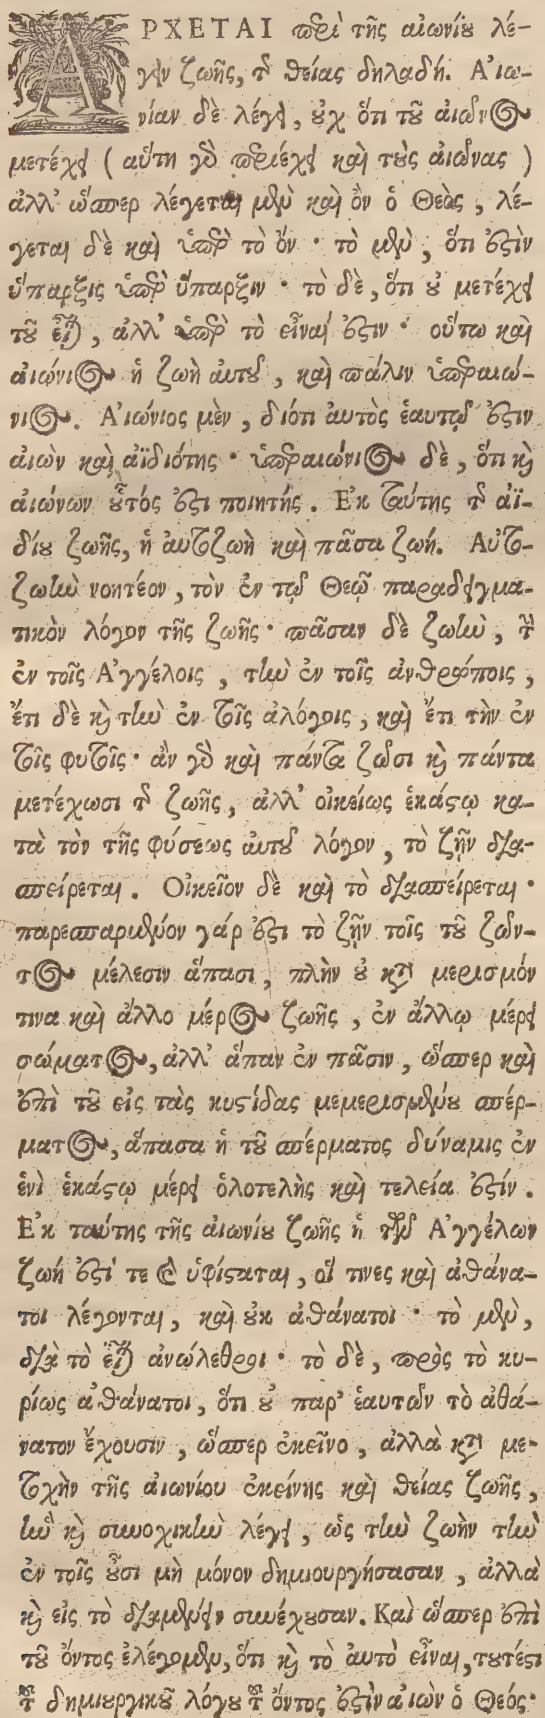 ΑΡΧΕΤΑΙ περὶ τῆς αἰωνίου λέ-
γειν ζωῆς, τῆς θείας δηλαδή. Αἰω-
νίαν δὲ λέγει, οὐχ ὅτι τοῦ αἰῶνος
μετέχει (αὕτη γὰρ περιέχει καὶ τοὺς αἰῶνας)
ἀλλ' ὥσπερ λέγεται μὲν καὶ ὂν ὁ Θεὸς, λέ-
γεται δὲ καὶ ὑπὲρ τὸ ὄν · τὸ μὲν, ὅτι ἐστὶν
ὕπαρξις ὑπὲρ ὕπαρξιν · τὸ δὲ, ὅτι οὐ μετέχει
τοῦ εἶναι, ἀλλ' ὑπὲρ τὸ εἶναί ἐστιν · οὕτω καὶ
αἰώνιος ἡ ζωὴ αὐτοῦ, καὶ πάλιν ὑπεραιώ-
νιος. Αἰώνιος μὲν, διότι αὐτὸς ἑαυτῷ ἐστιν
αἰὼν καὶ ἀϊδιότης · ὑπεραιώνιος δὲ, ὅτι καὶ
αἰώνων οὗτός ἐστι ποιητής. Ἐκ ταύτης τῆς ἀϊ-
δίου ζωῆς, ἡ αὐτοζωὴ καὶ πᾶσα ζωή. Αὐτο-
ζωὴν νοητέον, τὸν ἐν τῷ Θεῷ παραδειγμα-
τικὸν λόγον τῆς ζωῆς · πᾶσαν δὲ ζωὴν, τὴν
ἐν τοῖς Ἀγγέλοις, τὴν ἐν τοῖς ἀνθρώποις,
ἔτι δὲ καὶ τὴν ἐν τοῖς ἀλόγοις, καὶ ἔτι τὴν ἐν
τοῖς φυτοῖς · ἂν γὰρ καὶ πάντα ζῶσι καὶ πάντα
μετέχωσι τῆς ζωῆς, ἀλλ' οἰκείως ἑκάστῳ κα-
τὰ τὸν τῆς φύσεως αὐτοῦ λόγον, τὸ ζῆν δια-
σπείρεται. Οἰκεῖον δὲ καὶ τὸ διασπείρεται ·
παρεσπαρμένον γάρ ἐστι τὸ ζῆν τοῖς τοῦ ζῶν-
τος μέλεσιν ἅπασι, πλὴν οὐ κατὰ μερισμόν
τινα καὶ ἄλλο μέρος ζωῆς, ἐν ἄλλῳ μέρει
σώματος, ἀλλ' ἅπαν ἐν πᾶσιν, ὥσπερ καὶ
ἐπὶ τοῦ εἰς τὰς κυστίδας μεμερισμένου σπέρ-
ματος, ἅπασα ἡ τοῦ σπέρματος δύναμις ἐν
ἑνὶ ἑκάστῳ μέρει ὁλοτελὴς καὶ τελεία ἐστίν.
Ἐκ ταύτης τῆς αἰωνίου ζωῆς ἡ τῶν Ἀγγέλων
ζωή ἐστί τε καὶ ὑφίσταται, οἵ τινες καὶ ἀθάνα-
τοι λέγονται, καὶ οὐκ ἀθάνατοι · τὸ μὲν,
διὰ τὸ εἶναι ἀνώλεθροι · τὸ δὲ, πρὸς τὸ κυ-
ρίως ἀθάνατοι, ὅτι οὐ παρ' ἑαυτῶν τὸ ἀθά-
νατον ἔχουσιν, ὥσπερ ἐκεῖνο, ἀλλὰ κατὰ με-
τοχὴν τῆς αἰωνίου ἐκείνης καὶ θείας ζωῆς,
ἣν καὶ συνοχικὴν λέγει, ὡς τὴν ζωὴν τὴν
ἐν τοῖς οὖσι μὴ μόνον δημιουργήσασαν, ἀλλὰ
καὶ εἰς τὸ διαμένειν συνέχουσαν. Καὶ ὥσπερ ἐπὶ
τοῦ ὄντος ἐλέγομεν, ὅτι καὶ τὸ αὐτὸ εἶναι, τουτέστι
τοῦ δημιουργικοῦ λόγου τοῦ ὄντος ἐστὶν αἰὼν ὁ Θεός ·